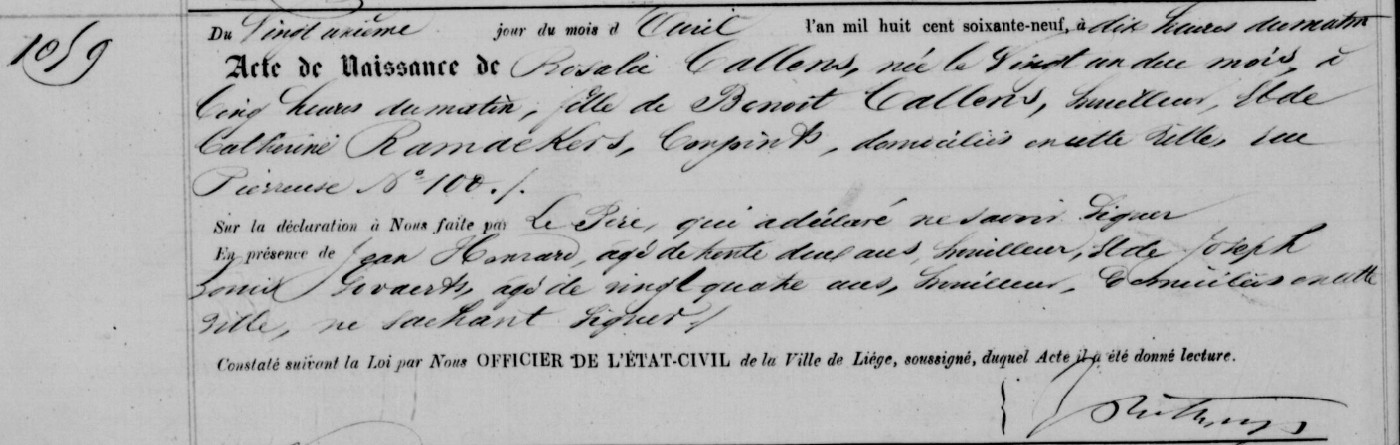 1059
Du Vingt unième jour du mois d Avril l'an mil huit cent soixante-neuf, à dix heures du matin
Acte de Naissance de Rosalie Callens, née le Vingt un du mois, à
Cinq heures du matin, fille de Benoit Callens, houilleur, et de
Catherine Ramaekers, Conjoints, domiciliés en cette Ville, rue
Pierreuse N° 100./.
Sur la déclaration à Nous faite par Le Père, qui a déclaré ne savoir Signer
En présence de Jean Honrard, agé de trente deux ans, houilleur, et de Joseph
Louis Govaerts, agé de vingt quatre ans, houilleur, Domiciliés en cette
Ville, ne sachant Signer./
Constaté suivant la Loi par Nous OFFICIER DE L'ÉTAT-CIVIL de la Ville de Liége, soussigné, duquel Acte il a été donné lecture.